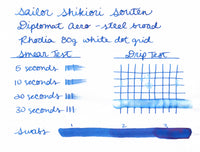 Sailor Shikiori Souten
Diplomat Aero - steel broad
Rhodia 80g white dot grid
Smear Test Drip Test
5 seconds
10 seconds
20 seconds
30 seconds
Swabs 1 2 3